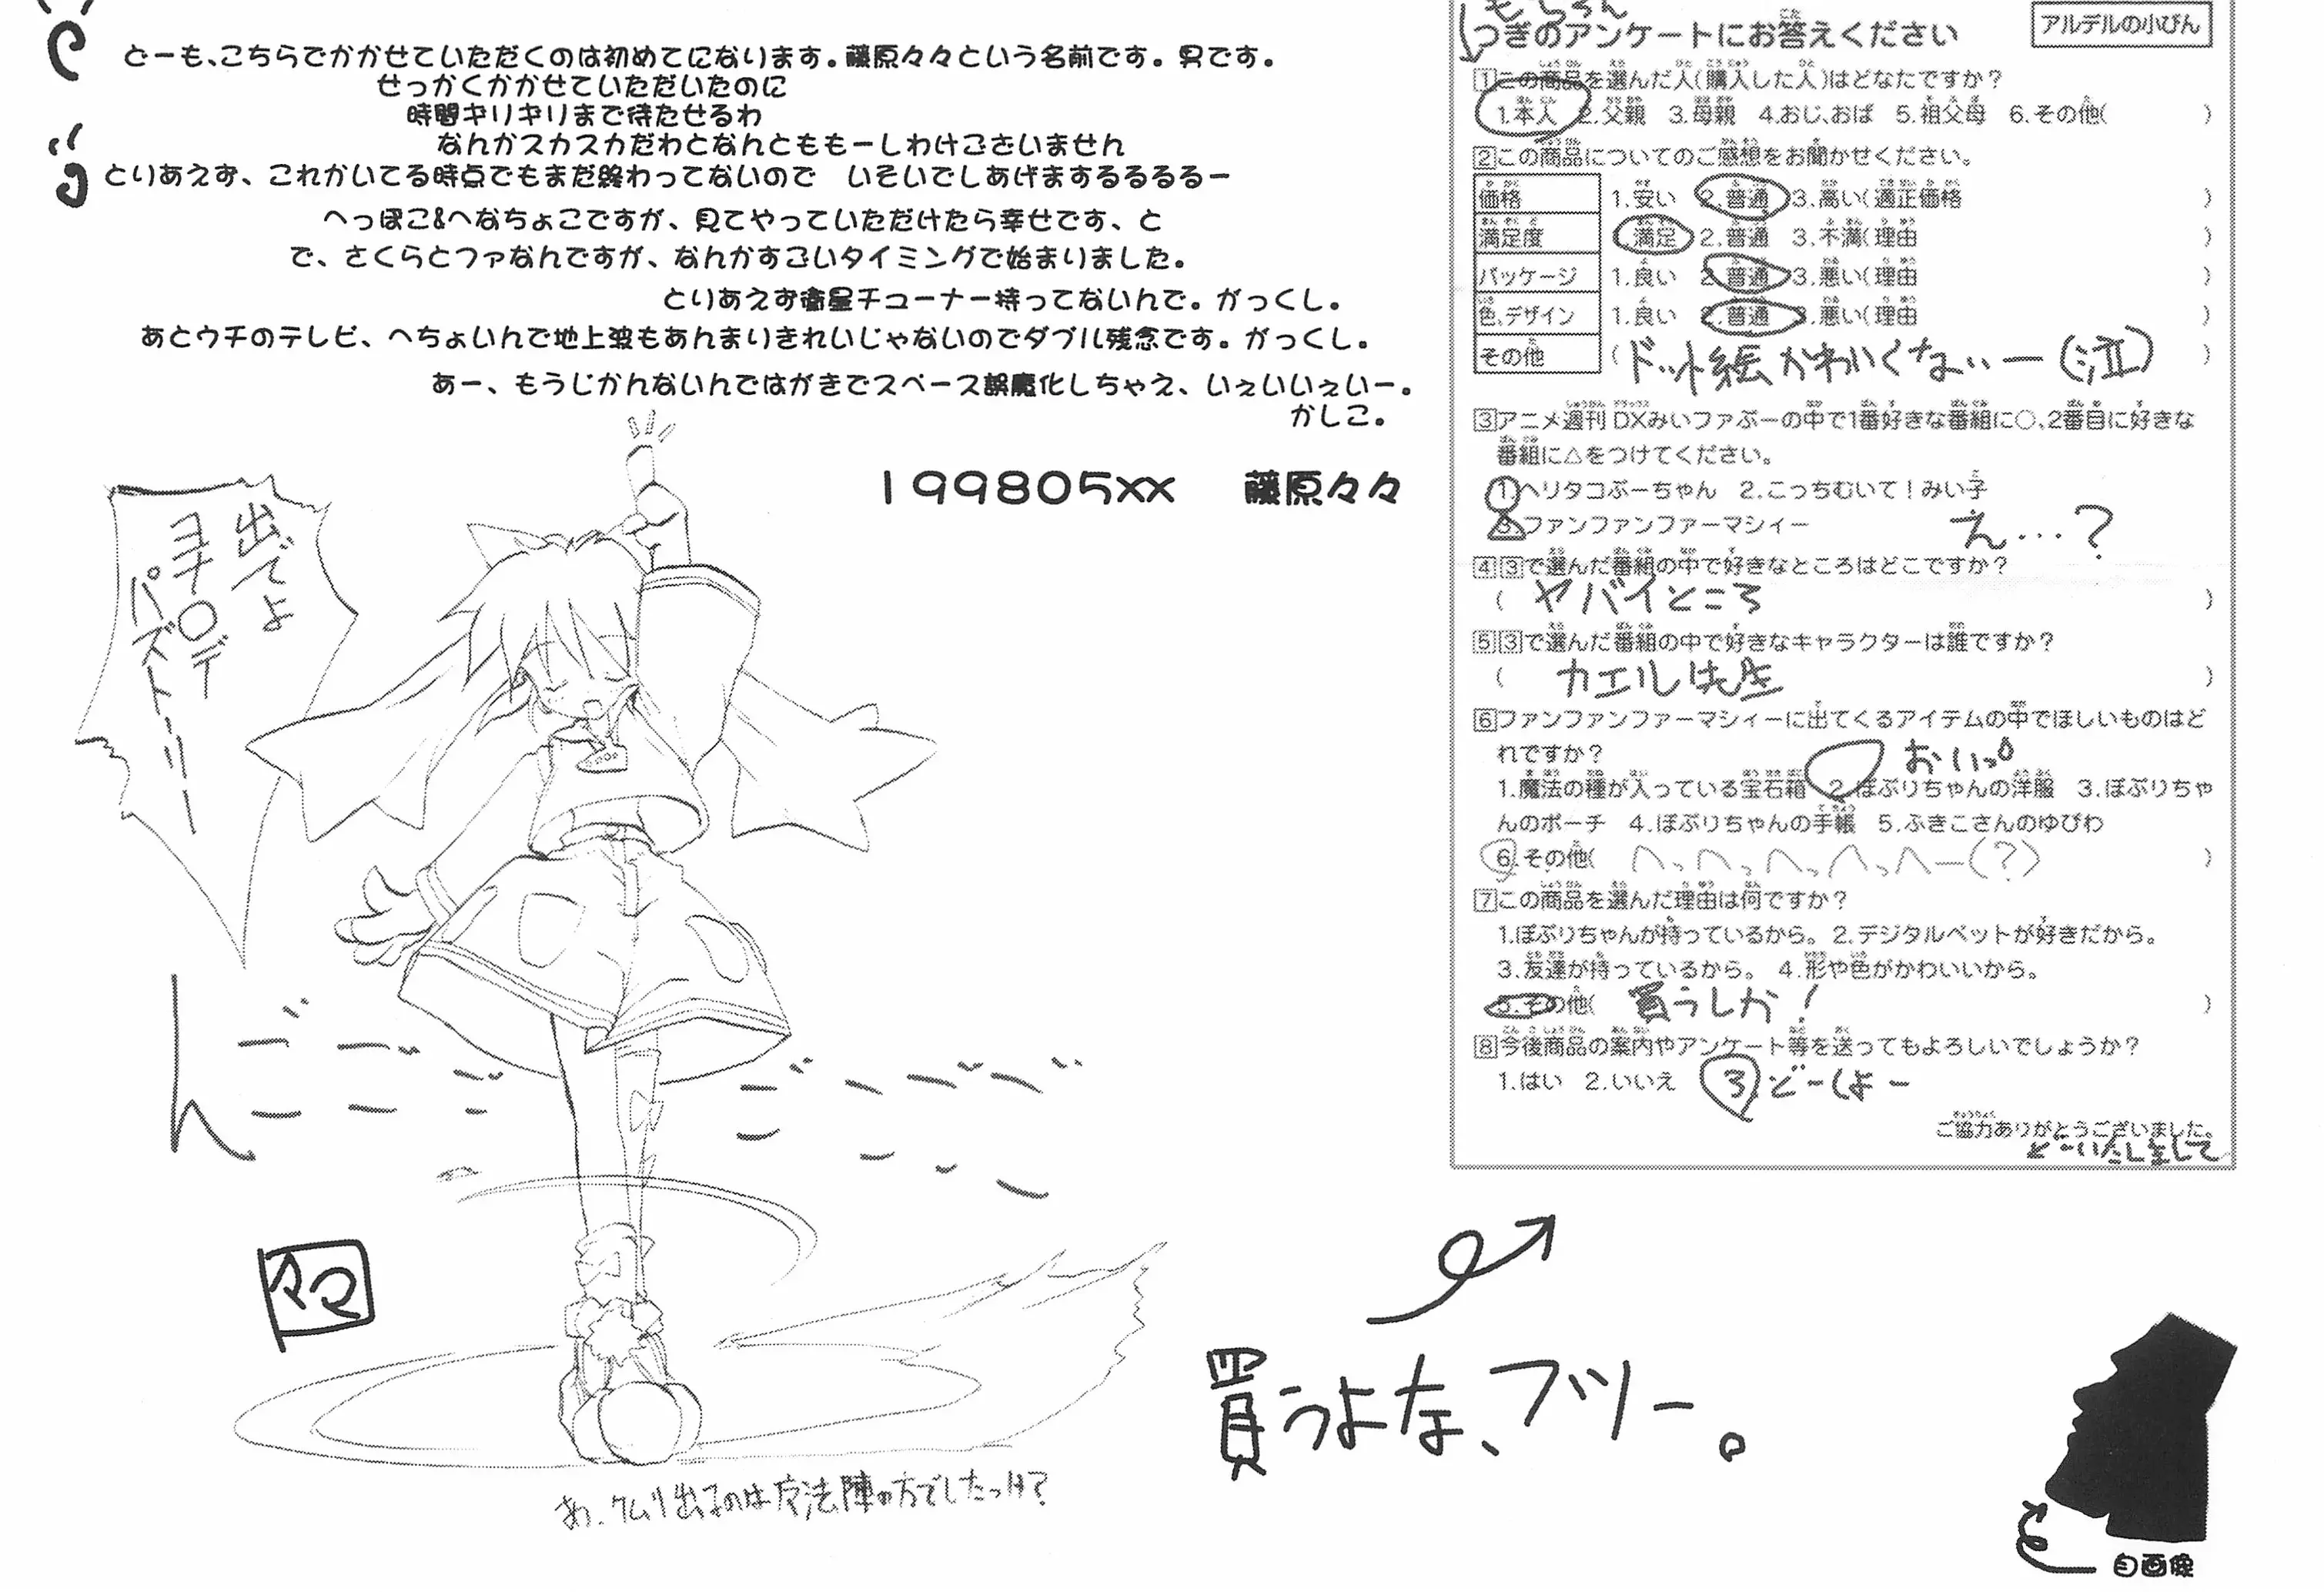 どーも、こちらでかかせていただくのは初めてになります。藤原々々という名前です。男です。
せっかくかかせていただいたのに
時間ギリギリまで待たせるわ
なんかスカスカだわとなんとももーしわけございません
とりあえず、これかいてる時点でもまだ終わってないので　いそいでしあげまするるるるー
へっぽこ&へなちょこですが、見てやっていただけたら幸せです、と
で、さくらとファなんですが、なんかすごいタイミングで始まりました。
とりあえず衛星チューナー持ってないんで。がっくし。
あとウチのテレビ、へちょいんで地上波もあんまりきれいじゃないのでダブル残念です。がっくし。
あー、もうじかんないんではがきでスペース誤魔化しちゃえ、いぇいいぇいー。
かしこ。
199805xx　藤原々々
出でよ
コナ〇デ
パズトリー
んー
々マ
あ、ケムリ出るのは魔法陣の方でしたっけ?
アルデルの小びん
もちろん
つぎのアンケートにお答えください
1この商品を選んだ人(購入した人)はどなたですか?
1.本人　2.父親　3.母親　4.おじ、おば　5.祖父母　6.その他(　)
2この商品についてのご感想をお聞かせください。
価格　1.安い　2.普通　3.高い(適正価格　)
満足度　満足　2.普通　3.不満(理由　)
パッケージ　1.良い　2.普通　3.悪い(理由　)
色、デザイン　1.良い　2.普通　3.悪い(理由　)
その他　(ドット絵かわいくなぃー(泣)　)
3アニメ週刊DXみいファぷーの中で1番好きな番組に○、2番目に好きな
番組に△をつけてください。
1.ヘリタコぷーちゃん　2.こっちむいて!みい子
3.ファンファンファーマシィー　え…?
43で選んだ番組の中で好きなところはどこですか?
(ヤバイところ　)
53で選んだ番組の中で好きなキャラクターは誰ですか?
(カエル先生　)
6ファンファンファーマシィーに出てくるアイテムの中でほしいものはど
れですか?　おいっ
1.魔法の種が入っている宝石箱　2.ぽぷりちゃんの洋服　3.ぽぷりちゃ
んのポーチ　4.ぽぷりちゃんの手帳　5.ふきこさんのゆびわ
6.その他(へっへっへっへっへー(?)　)
7この商品を選んだ理由は何ですか?
1.ぽぷりちゃんが持っているから。2.デジタルペットが好きだから。
3.友達が持っているから。　4.形や色がかわいいから。
5.その他(買うしか!　)
8今後商品の案内やアンケート等を送ってもよろしいでしょうか?
1.はい　2.いいえ　3どーしよー
ご協力ありがとうございました。
どーいたしまして
買うよな、フツー。
自画像